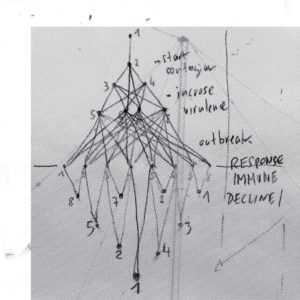 1
2
start
contagion
3 4
- increase
virulence
5
outbreak
1 1 2 2
RESPONSE
IMMUNE
DECLINE/
8 7 2 1
5 3
2 4
1